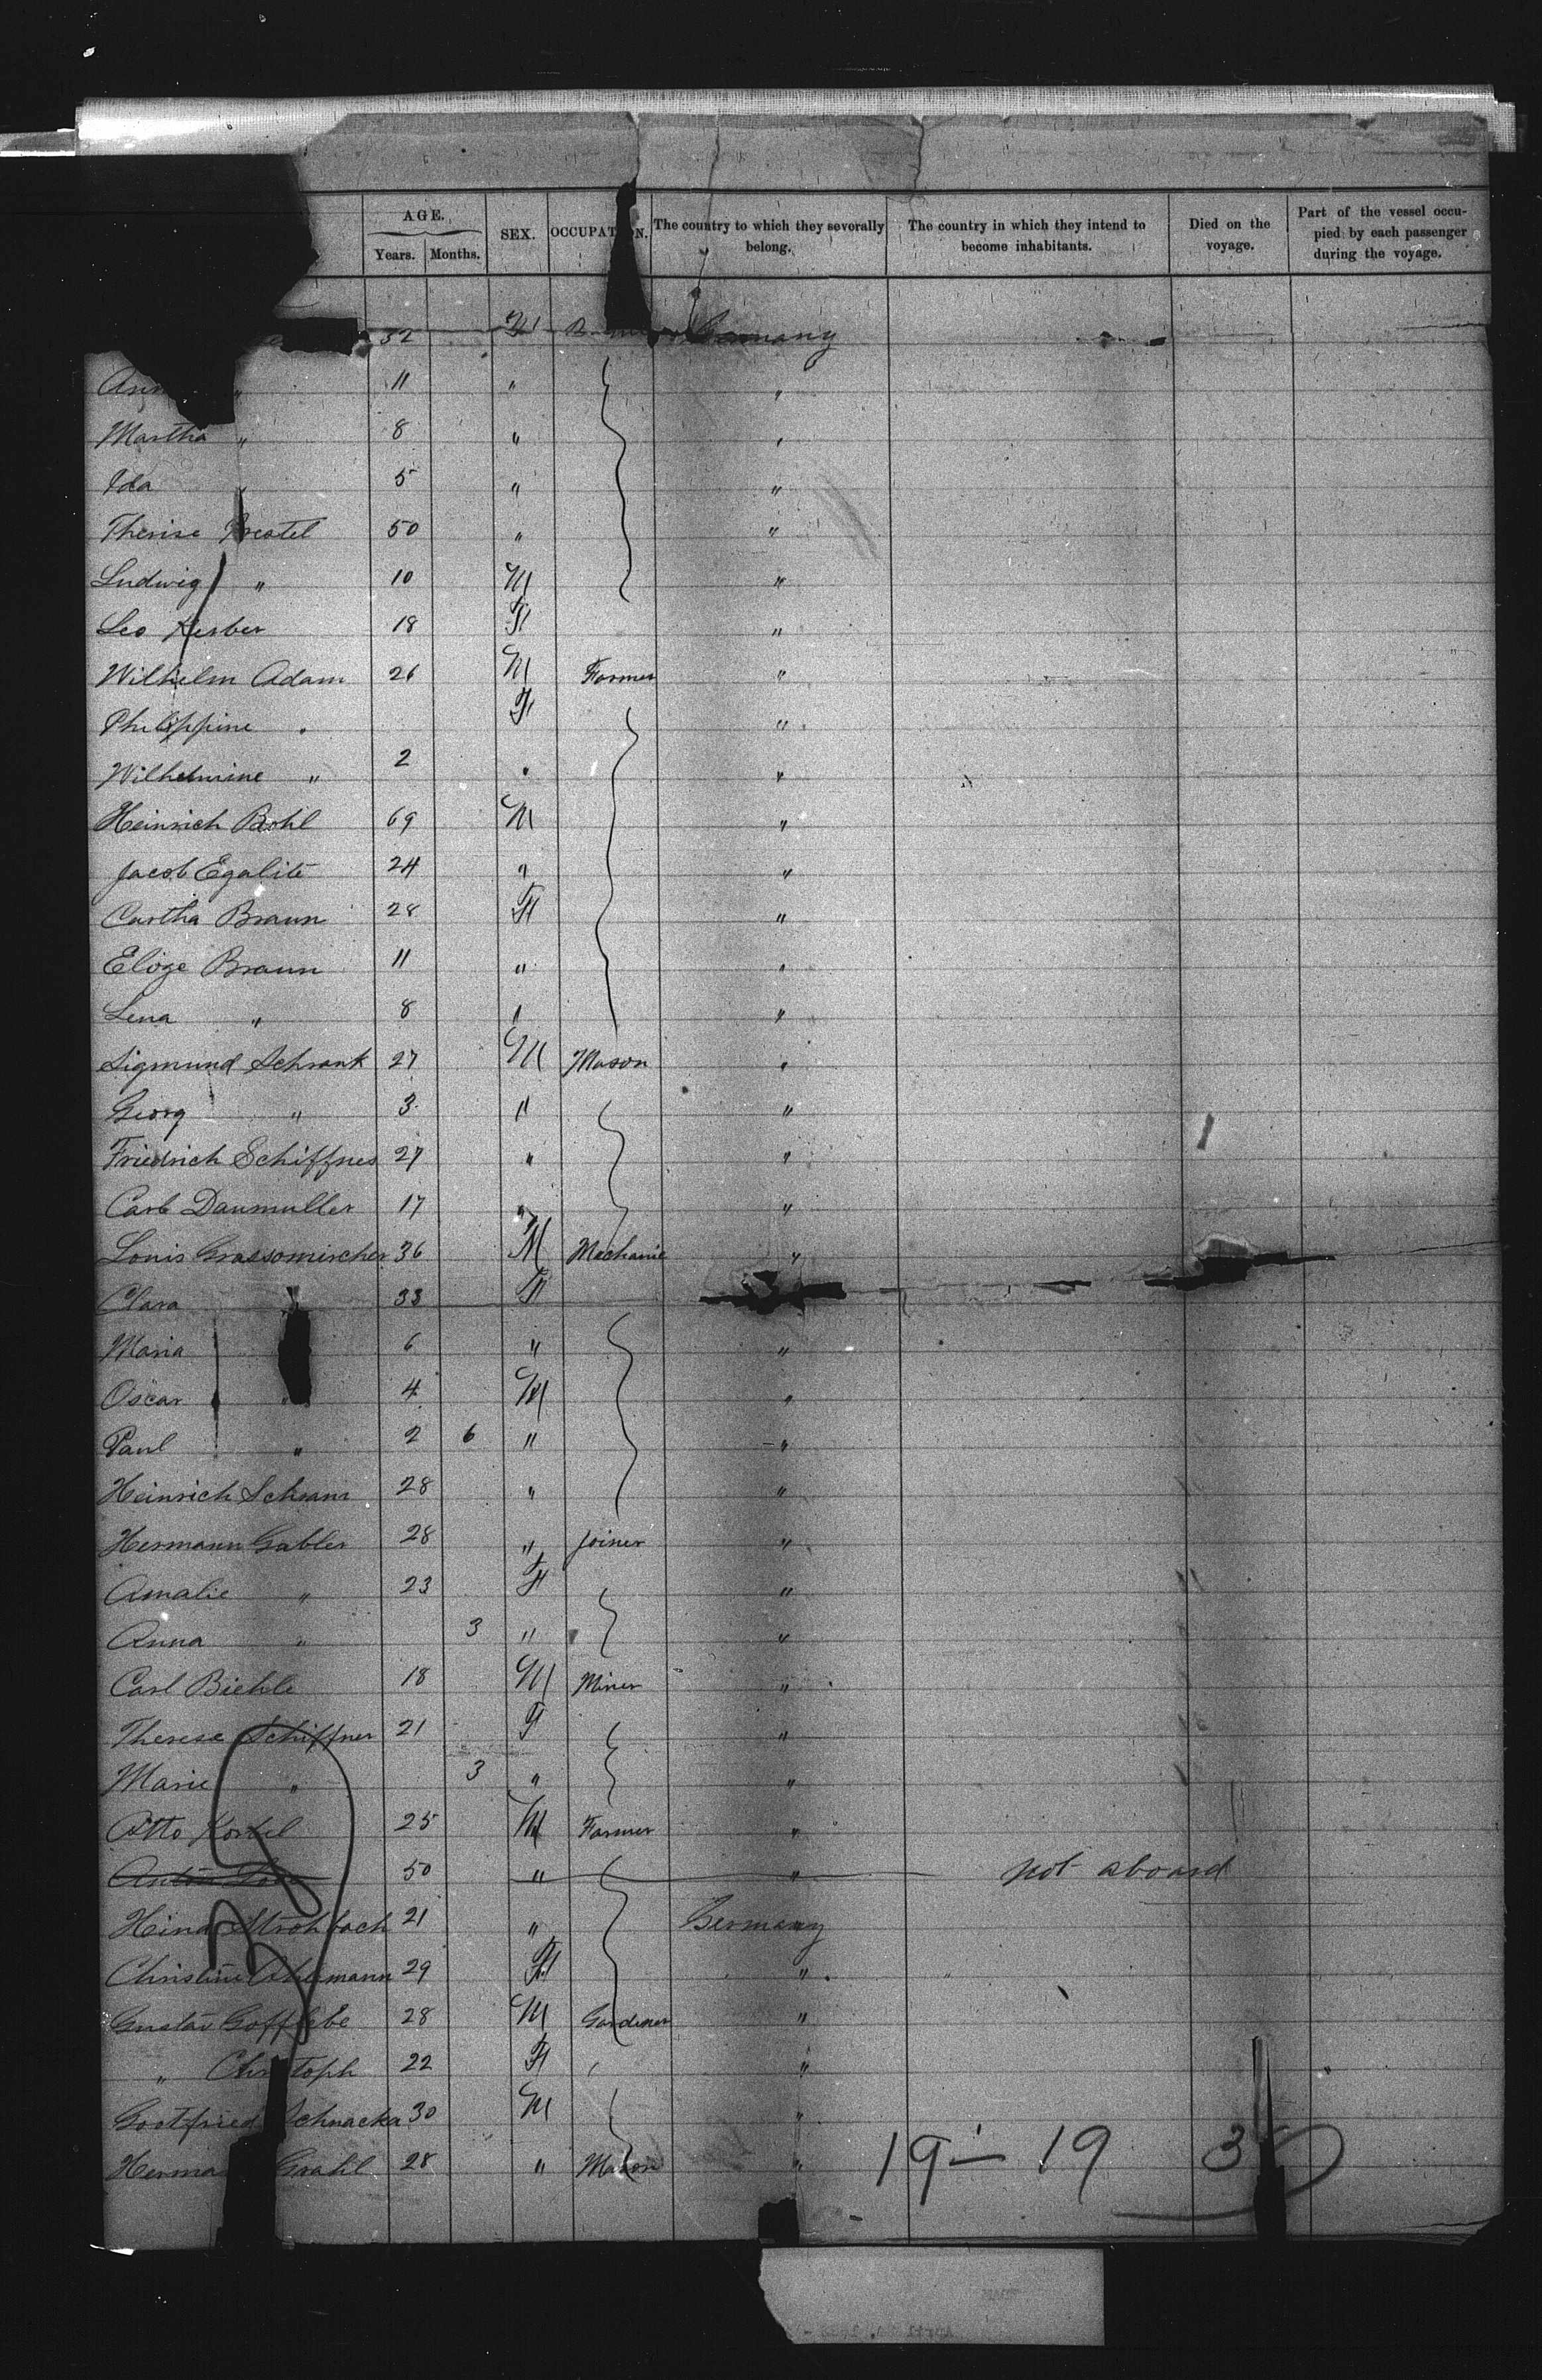 AGE. SEX. OCCUPAT N. The country to which they severally belong. The country in which they intend to become inhabitants. Died on the voyage. Part of the vessel occupied by each passenger during the voyage.
Years. Months.
32 F Germany
Ann " 11 " "
Martha " 8 " "
Ida " 5 " "
Therise 50 " "
Ludwig " 10 M "
Leo Kerber 18 F "
Wilhelm Adam 26 M Farmer "
Philippine " F "
Wilhelmine " 2 " "
Heinrich Bohl 69 M "
Jacob Egalite 24 " "
Cartha Braun 28 F "
Elöge Braun 11 " "
Lena " 8 " "
Sigmund Schrank 27 M Mason "
Georg " 3 " "
Friedrich Schiffner 27 " "
Carl Daumuller 17 " "
Louis Grassomircher 36 M Mechanic "
Clara 33 F
Maria 6 " "
Oscar " 4 M "
Paul " 2 6 " "
Heinrich Schram 28 " "
Hermann Gabler 28 " Joiner "
Amalie " 23 F "
Anna " 3 " "
Carl Biehle 18 M Miner "
Therese Schiffner 21 F "
Marie " 3 " "
Otto Korbel 25 M Farmer "
Anton 50 " " not aboard
Strohbach 21 " Germany
Christine 29 F "
Gustav 28 M Gardener "
" Christoph 22 F "
Gottfried Schnacka 30 M "
Herma Grahl 28 " Mason "
19 – 19 3